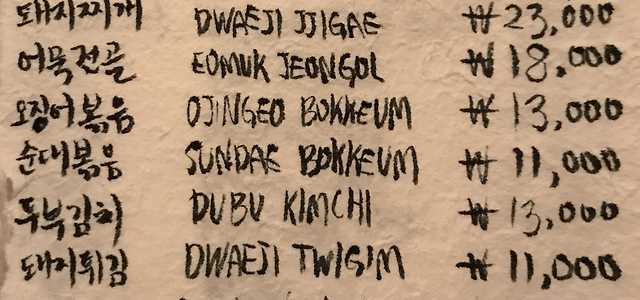 돼지찌개 DWAEJI JJIGAE ₩23,000
어묵전골 EOMUK JEONGOL ₩18,000
오징어볶음 OJINGEO BOKKEUM ₩13,000
순대볶음 SUNDAE BOKKEUM ₩11,000
두부김치 DUBU KIMCHI ₩13,000
돼지튀김 DWAEJI TWIGIM ₩11,000